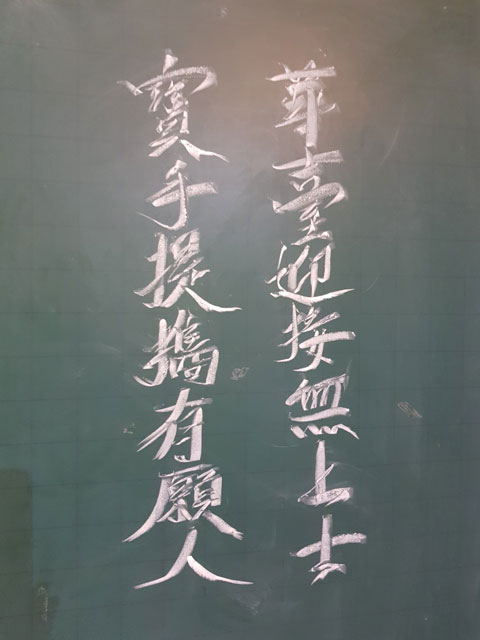 華臺迎接無上士
寶手提攜有願人